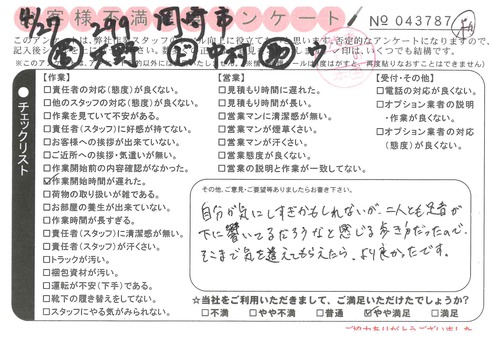 お客様不満足アンケート
4/29
299
岡崎市
No 043787
矢野
中村
ウ
※この「アンケート」
チェックリスト
【作業】
□責任者の対応(態度)が良くない。
□他のスタッフの対応(態度)が良くない。
□作業を見ていて不安がある。
□責任者(スタッフ)に好感が持てない。
□お客様への挨拶が出来ていない。
□ご近所への挨拶・気遣いが無い。
□作業開始前の内容確認がなかった。
☑作業開始時間が遅れた。
□荷物の取り扱いが雑である。
□お部屋の養生が出来ていない。
□作業時間が長すぎる。
□責任者(スタッフ)に清潔感が無い。
□責任者(スタッフ)が汗くさい。
□トラックが汚い。
□梱包資材が汚い。
□運転が不安(下手)である。
□靴下の履き替えをしてない。
□スタッフにやる気がみられない。
【営業】
□見積もり時間に遅れた。
□見積もり時間が長い。
□営業マンに清潔感が無い。
□営業マンが煙草くさい。
□営業マンが汗くさい。
□営業態度が良くない。
□営業の説明と作業が一致してない。
【受付・その他】
□電話の対応が良くない。
□オプション業者の説明
・作業が良くない。
□オプション業者の対応
(態度)が良くない。
その他、ご意見・ご要望等ありましたらお書き下さい。
自分が気にしすぎかもしれないが、二人とも足音が
下に響いてるだろうなと感じる歩き方だったので、
そこまで気を遣えてもらえたら、より良かったです。
☆当社をご利用いただきまして、ご満足いただけたでしょうか?
□不満 □やや不満 □普通 ☑やや満足 □満足
ご協力ありがとうございました